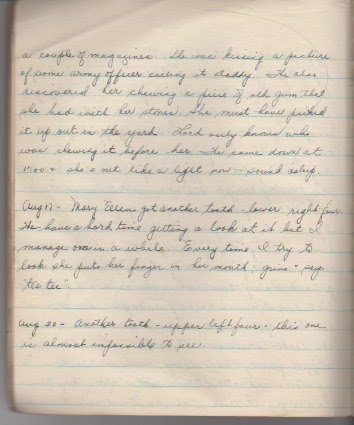 a couple of magazines. She was kissing a picture
of some army officer calling it daddy. We also
discovered her chewing a piece of old gum that
she had with her stones. She must have picked
it up out in the yard. Lord only knows who
was chewing it before her. We came down at
and she's out like a light now - sound asleep.
Aug 17 - Mary Ellen got another tooth - lower right four
We have a hard time getting a look at it but I
manage once in a while. Every time I try to
look she puts her finger in her mouth, grins - says
"tee tee".
Aug 20 - Another tooth - upper left four - this one
is almost impossible to see.